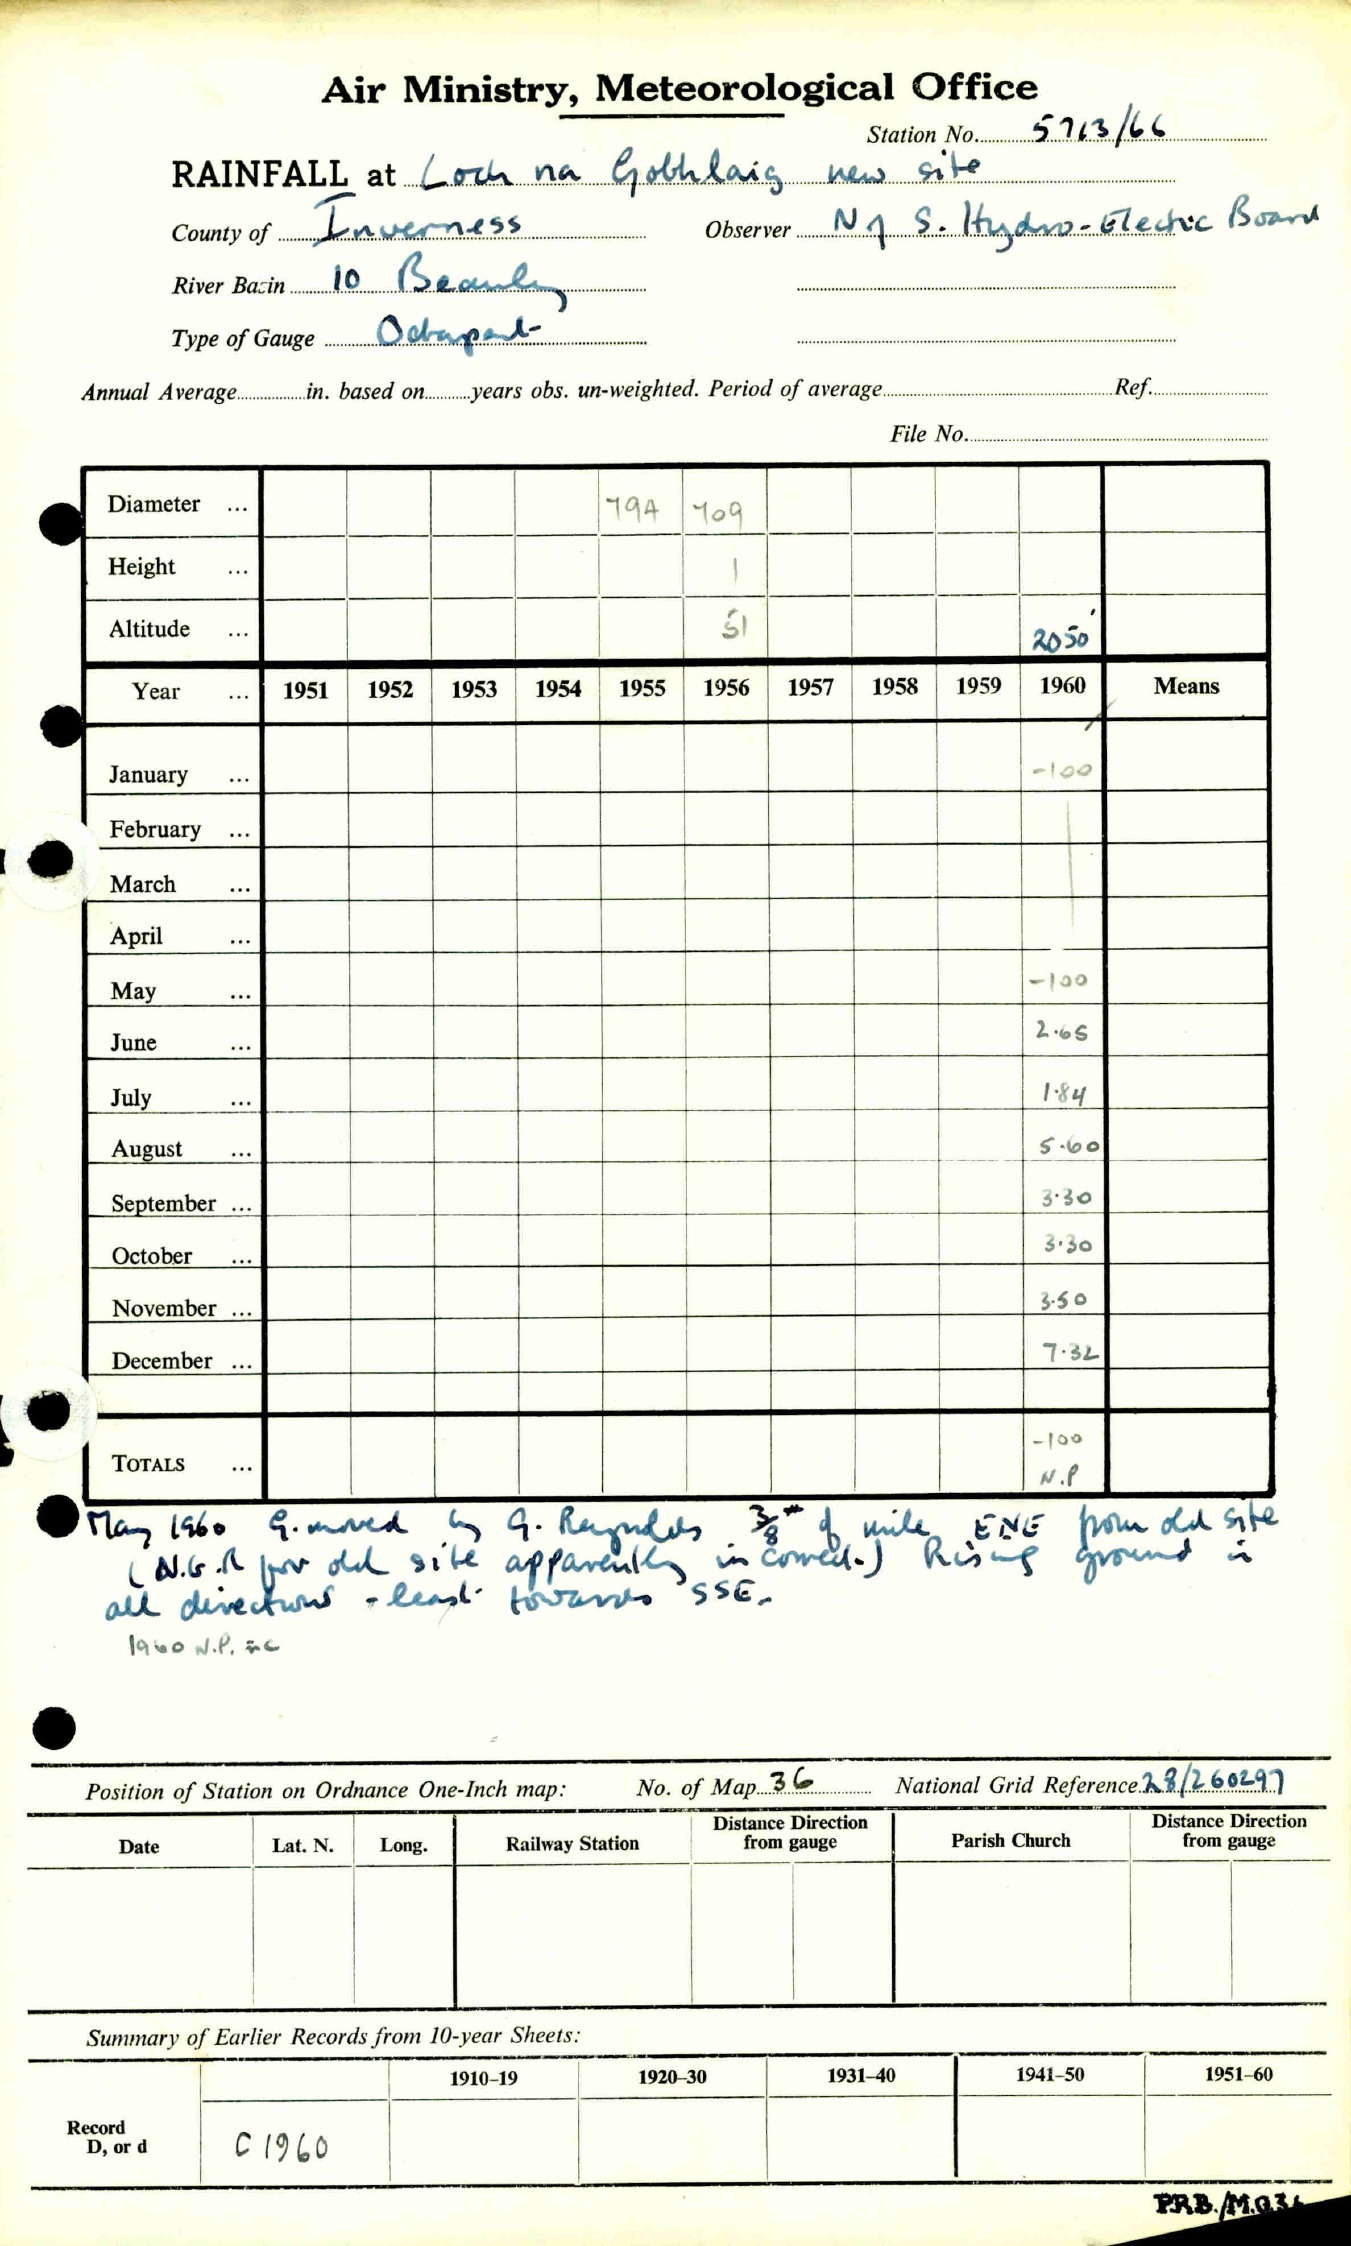 Air Ministry, Meteorological Office
Station No. 5713/66
RAINFALL at Loch na Gobhlaig new site
County of Inverness Observer N of S. Hydro-Electric Board
River Basin 10 Beauly
Type of Gauge Octapent
Annual Average in. based on years obs. un-weighted. Period of average Ref.
File No.
Diameter ... 794 709
Height ... 1
Altitude ... 51 2050'
Year ... 1951 1952 1953 1954 1955 1956 1957 1958 1959 1960 Means
January ... -100
February ...
March ...
April ...
May ... -100
June ... 2.65
July ... 1.84
August ... 5.60
September ... 3.30
October ... 3.30
November ... 3.50
December ... 7.32
-100
TOTALS ... N.P
May 1960 G. moved by G. Reynolds 3/8 of mile ENE from old site
(N.G.R for old site apparently incorrect.) Rising ground in
all directions - least towards SSE.
1960 N.P.
Position of Station on Ordnance One-Inch map: No. of Map 36 National Grid Reference 28/260297
Date Lat. N. Long. Railway Station Distance Direction from gauge Parish Church Distance Direction from gauge
Summary of Earlier Records from 10-year Sheets:
1910–19 1920–30 1931–40 1941–50 1951–60
Record
D, or d C 1960